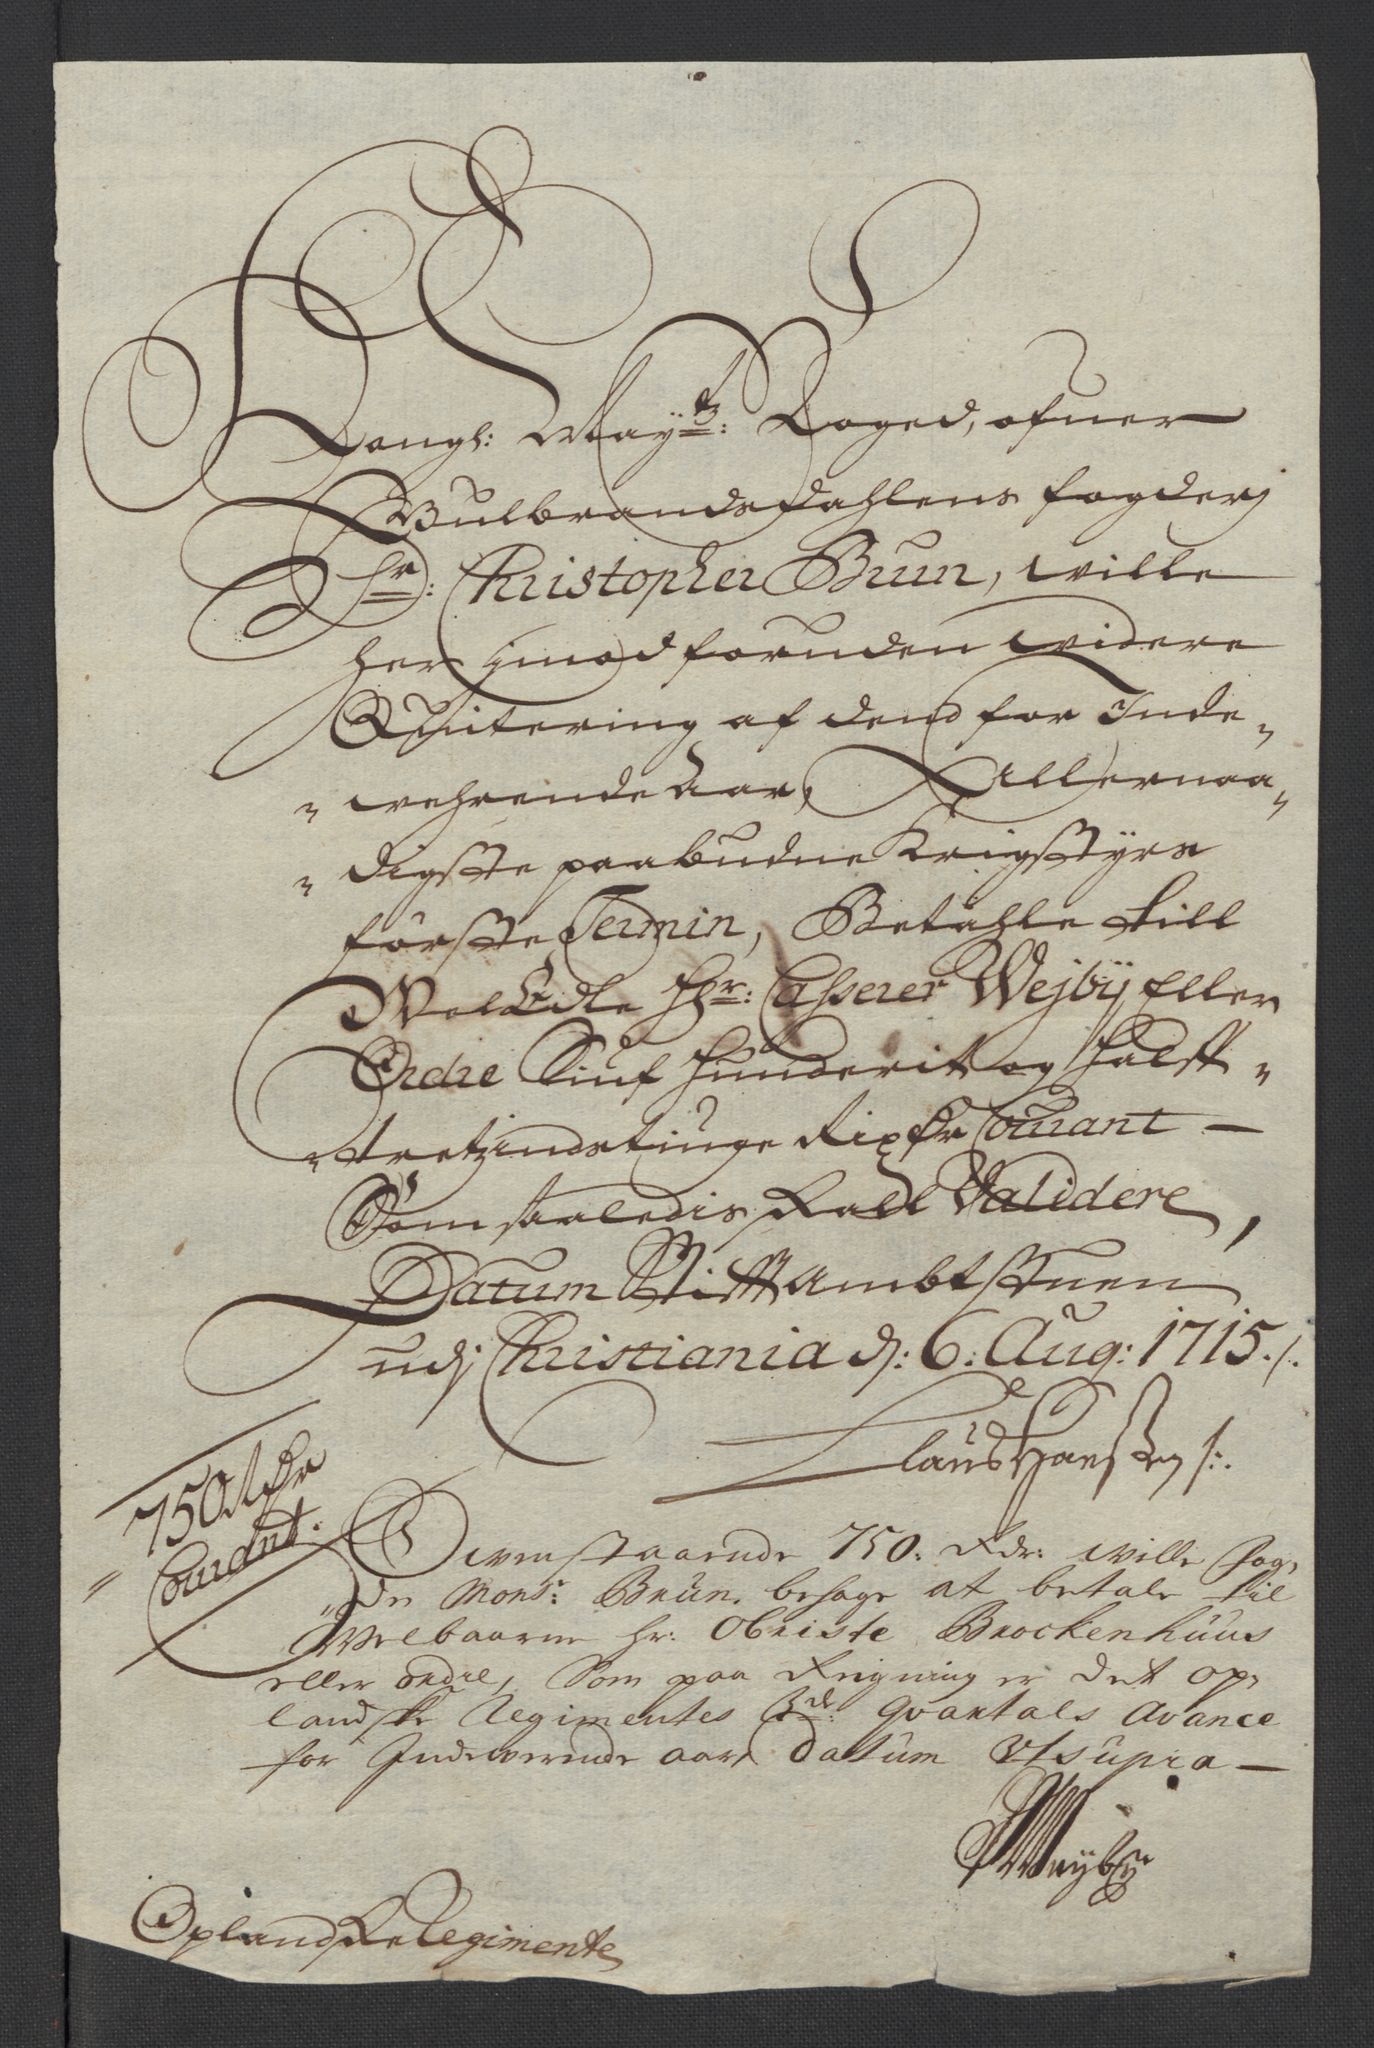 Kongl: May:ts: Foged, ofuer
Gulbrandsdahlens fogderj
Hr: Christopher Brun, wille
her imod foruden widere
Qvitering af dend for Inde-
-wehrende Aar, Allernaa-
-digste paabudne Krigsstyrs
förste Termin, Betahle till
WelEdle Hr: Casserer Wejby Eller
Ordre Siuf Hunderit og Halff-
-tretzindstiuge Rixdr Courant —
Som saaledis skall Validere,
Datum StifftAmbtstuen
udj Christiania d: 6: Aug: 1715 ./.
Claus Hansen /:.
750 Rdr
Courant:
Ovenstaaende 750: Rdr: wille Fog-
-de Mons: Brun. behage at betale til
Welbaarne hr: Obriste Brockenhuus
eller ordre, Som paa Reigning er det op-
landske Regimentes 3de: Qvartals Avance
for Indeværende aar Datum Ut supra —
Weybye
Oplandske Regimente